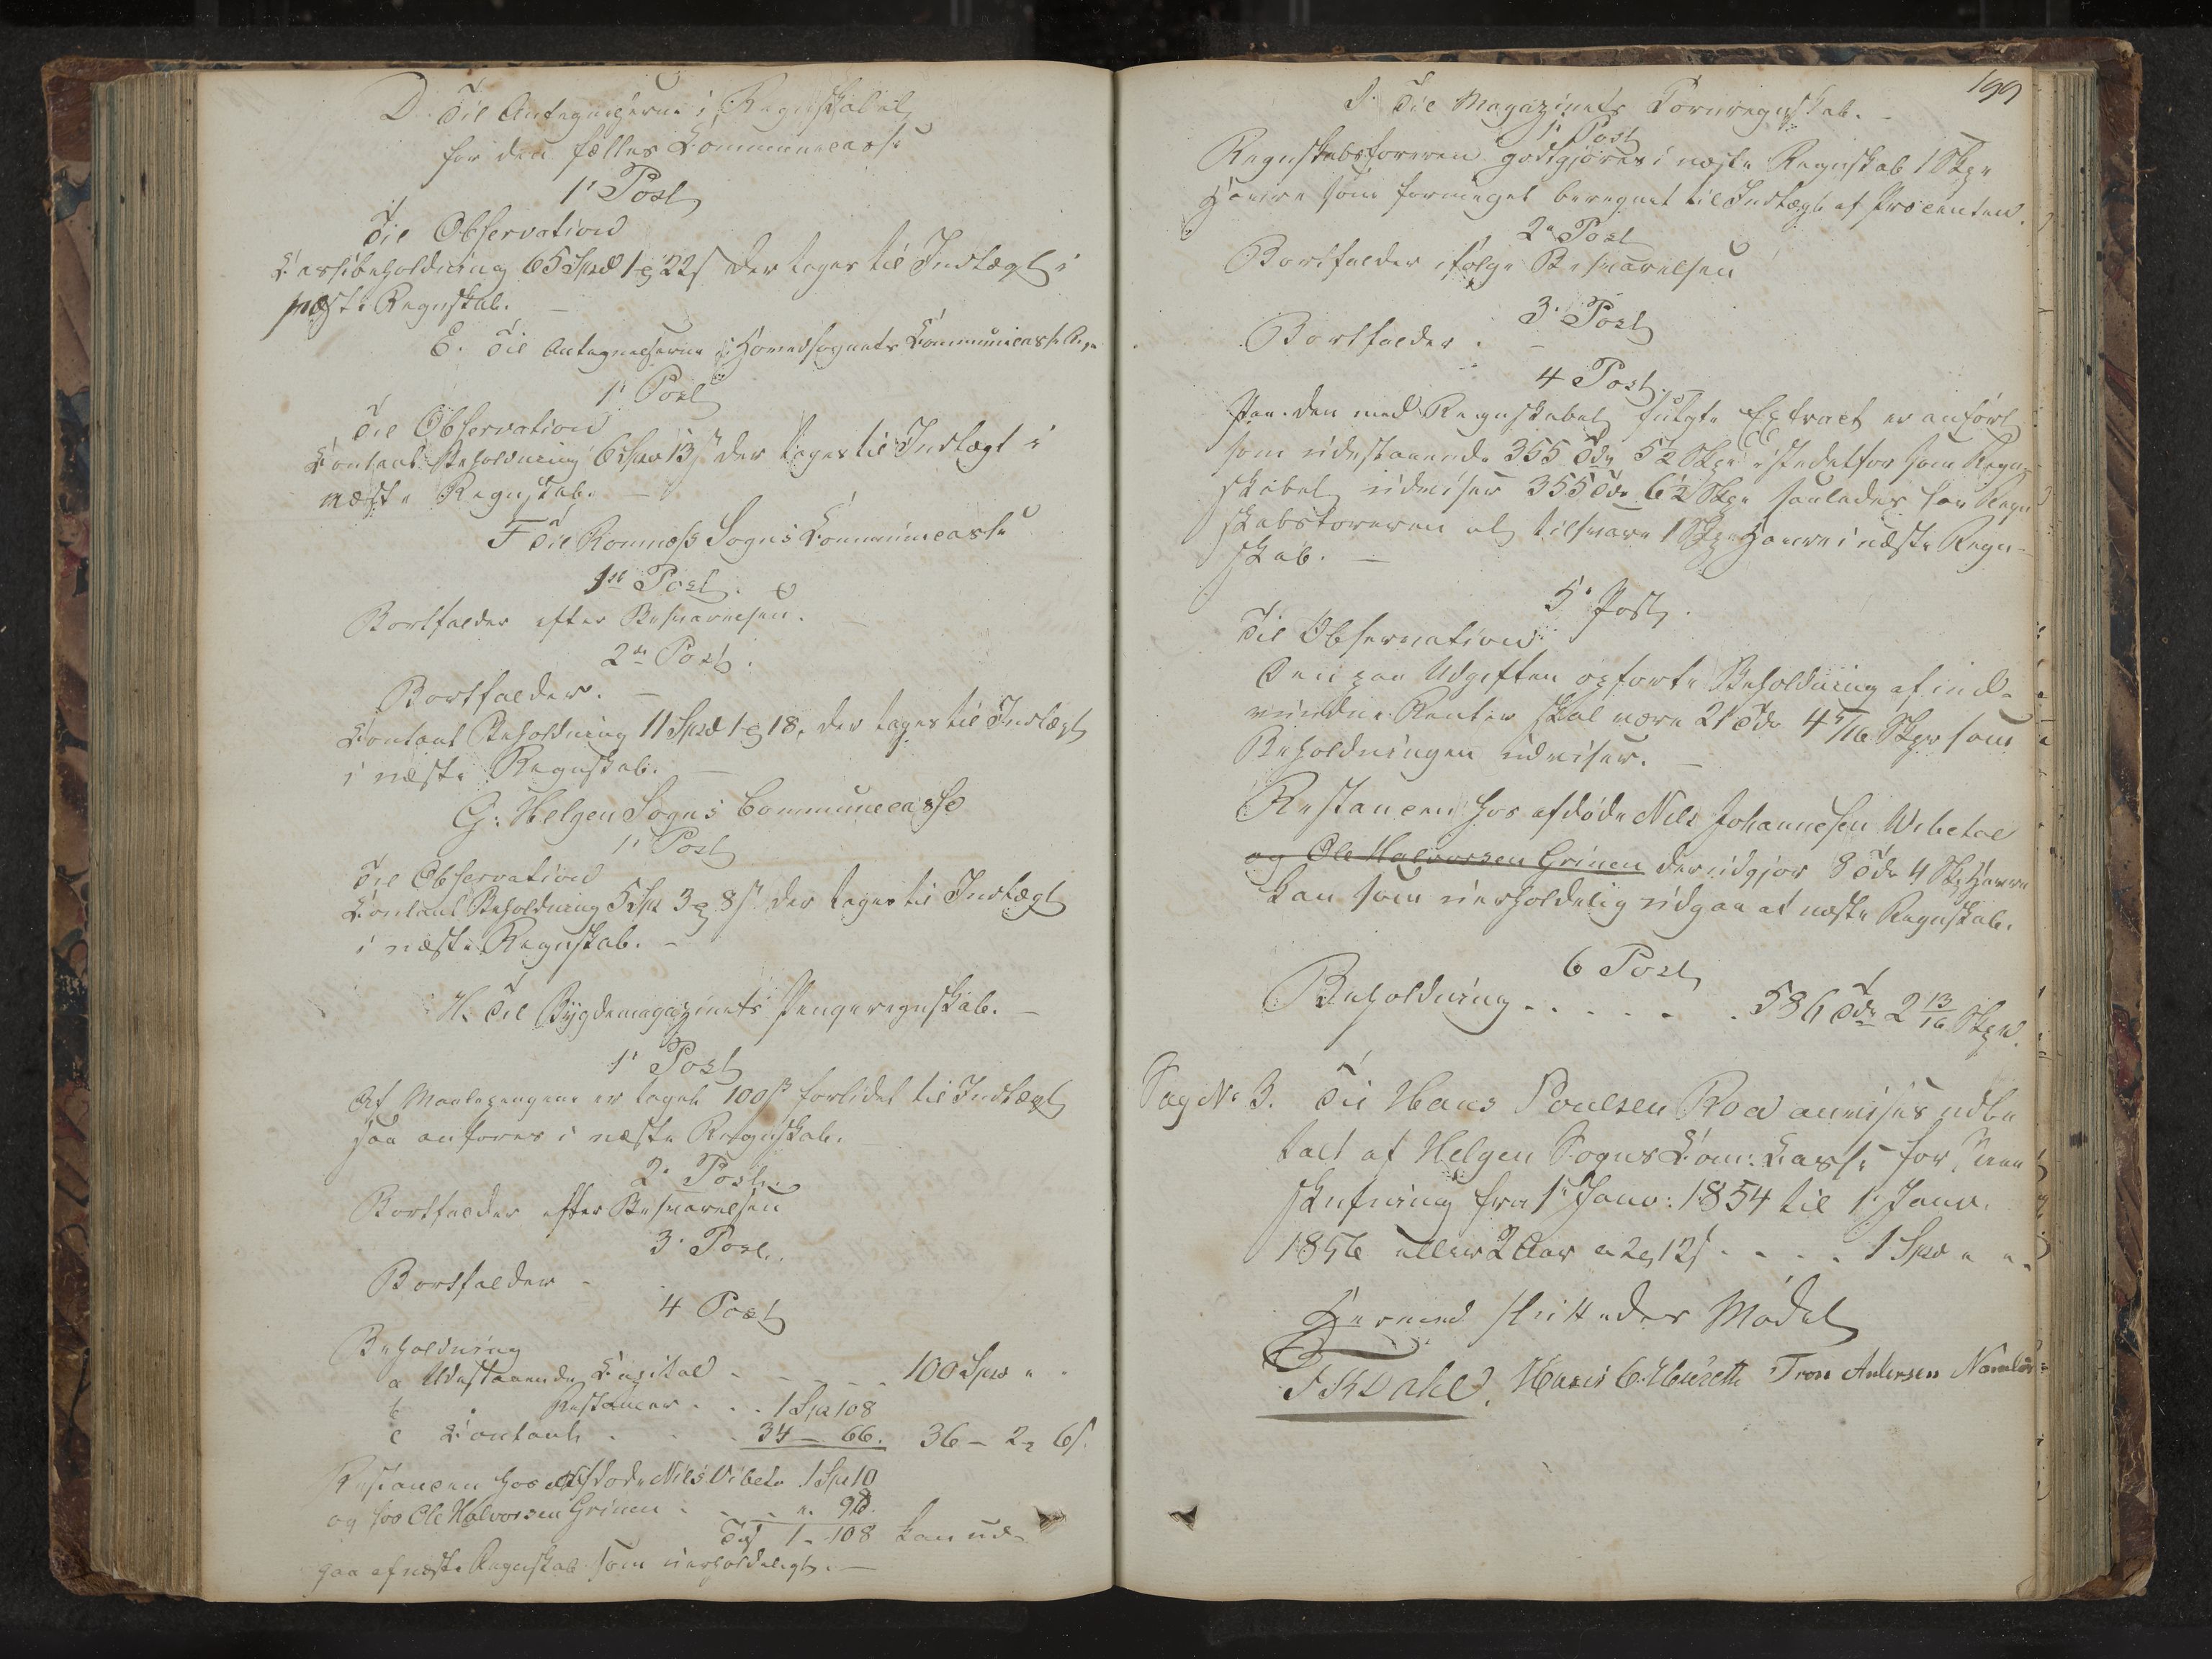 D. Til Antegnelserne i Regnskabet
for den fælles Communecasse
1ᵉ Post
Til Observation
Cassebeholdning 65 Spd 1 22 s der tages til Indtægt i
næste Regnskab. –
E. Til Antegnelserne i Hovedsognets Communecasse
1ᵉ Post
Til Observation
Contant Beholdning 6 Spd 13 s der tages til Indtægt i
næste Regnskab. –
F Til Romnæs Sogns Communecasse
1ste Post.
Bortfalder efter Besvarelsen.
2den Post.
Bortfalder. –
Contant Beholdning 11 Spd 1 18, der tages til Indtægt
i næste Regnskab. –
G: Helgen Sogns Communecasse
1ᵉ Post
Til Observation
Contant Beholdning 5 Spd 3 8 s der tages til Indtægt
i næste Regnskab. –
H. Til Bygdemagazinets Pengeregnskab. –
1ᵉ Post
Af Maalepengene er taget 100 s forlidet til Indtægt
som anføres i næste Regnskab.
2ᵉ Post.
Bortfalder efter Besvarelsen
3ᵉ Post.
Bortfalder –
4 Post
Beholdning
a Udestaaende Capital - - - - - 100 Spd " -
b " Restancer . . . 1 Spd 108
c Contant . . . 34 – 66. 36 – 2 6 s.
Restancen hos afdøde Nils Vibeto 1 Spd 10
og hos Ole Halvorsen Grinen . . . ". 98.
Tils 1 - 108 kan ud-
gaa af næste Regnskab som uerholdeligt. –
199
J. Til Magazinets Kornregnskab. –
1ᵉ Post
Regnskabsføreren godtgjøres i næste Regnskab 1 Skp
Havre som formeget beregnet til Indtægt af Procenten.
2ᵉ Post
Bortfalder ifølge Besvarelsen
3ᵉ Post
Bortfalder. –
4 Post. –
Paa den med Regnskabet fulgte Extract er anført
som udestaaende 355 Tdr 5½ Skp istedetfor som Regn-
skabet udviser 355 Tdr 6½ Skp saaledes har Regn
skabsføreren at tilsvare 1 Skp Havre i næste Regn-
skab. –
5ᵉ Post.
Til Observation
Den paa Udgiften opførte Beholdning af ind-
vundne Renter skal være 21 Tdr 4 /16 Skp som
Beholdningen udviser. –
Restancen hos afdøde Nils Johannesen Wibetoe
og Ole Halvorsen Grinen der udgjør 8 Tdr 4 Skp Havre
kan som uerholdelig udgaa af næste Regnskab.
6 Post
Beholdning . . . . . . 586 Tdr 2 13/16 Skp.
Sag No 3. Til Hans Poulsen Roa anvises udbe
talt af Helgen Sogns Com: Casse for
skydsning fra 1ᵉ Janv: 1854 til 1ᵉ Janv.
1856 eller 2 Aar a 2 12 s . . . . 1 Spd " ".
Hermed sluttedes Mødet
Dahl. Tron Andersen